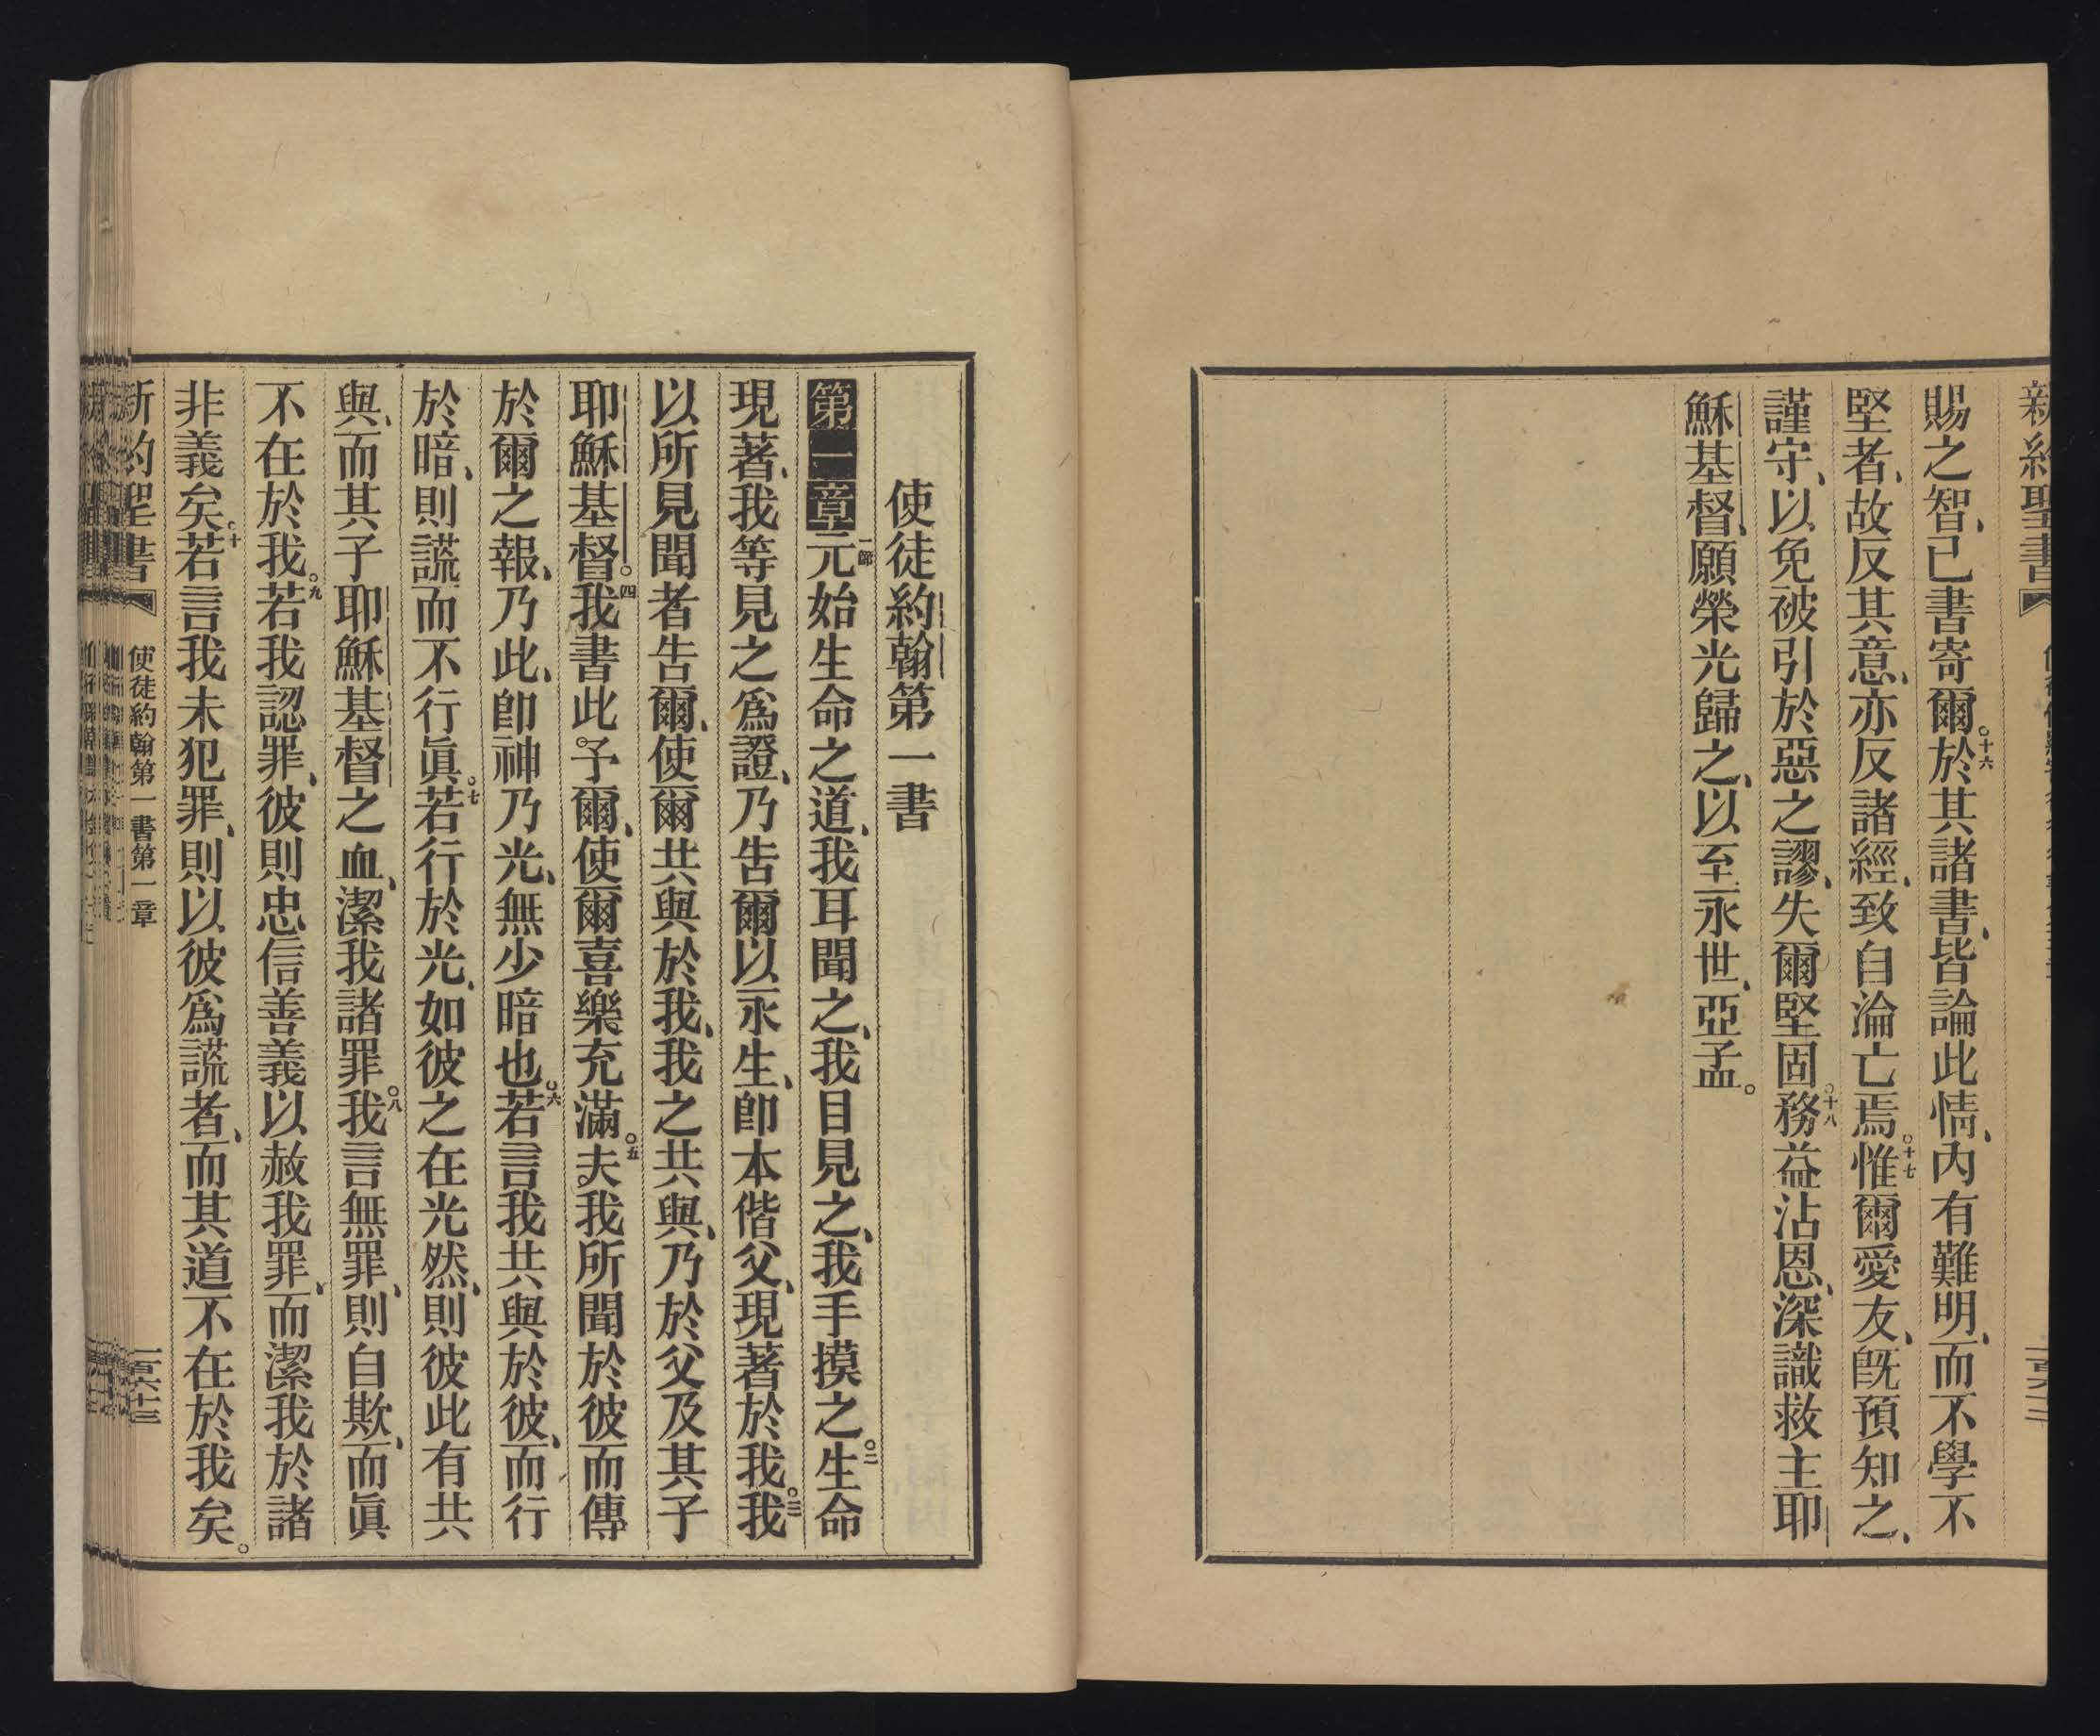 新約聖書
賜之智、已書寄爾。十六於其諸書、皆論此情、內有難明、而不學不
堅者、故反其意、亦反諸經、致自淪亡焉。十七惟爾愛友、旣預知之、
謹守、以免被引於惡之謬、失爾堅固。十八務益沾恩、深識救主耶
穌基督、願榮光歸之、以至永世、亞孟。
使徒約翰第一書
第一章一節元始生命之道、我耳聞之、我目見之、我手摸之。二生命
現著、我等見之爲證、乃告爾以永生、卽本偕父、現著於我。三我
以所見聞者告爾、使爾共與於我、我之共與、乃於父及其子
耶穌基督。四我書此予爾、使爾喜樂充滿。五夫我所聞於彼而傳
於爾之報、乃此、卽神乃光、無少暗也。六若言我共與於彼、而行
於暗、則謊而不行眞。七若行於光、如彼之在光然、則彼此有共
與、而其子耶穌基督之血、潔我諸罪。八我言無罪、則自欺、而眞
不在於我。九若我認罪、彼則忠信善義以赦我罪、而潔我於諸
非義矣。十若言我未犯罪、則以彼爲謊者、而其道不在於我矣。
新約聖書 使徒約翰第一書第一章 一百六十三